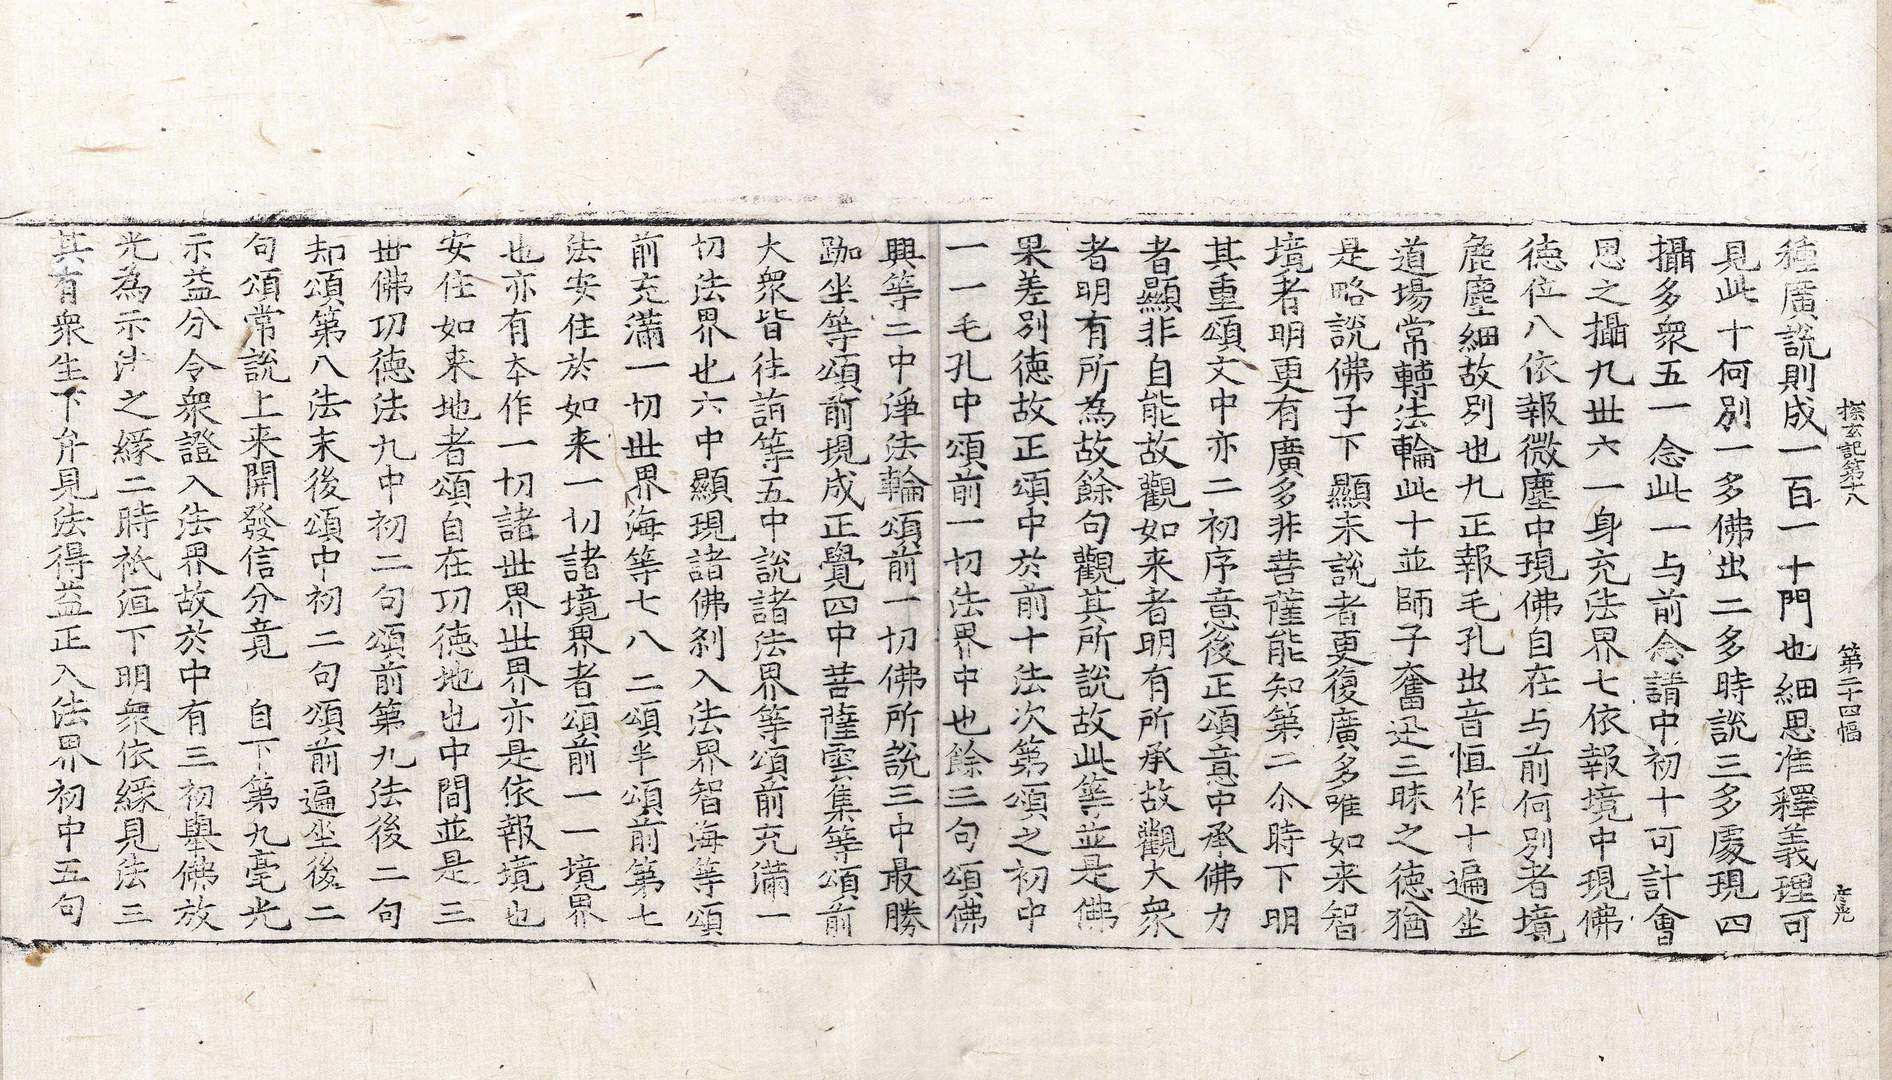 探玄記第十八　第二十四幅　彦光
種廣說則成一百一十門也細思准釋義理可
見此十何別一多佛出二多時說三多處現四
攝多衆五一念此一与前念請中初十可計會
思之攝九世六一身充法界七依報境中現佛
德位八依報微塵中現佛自在与前何別者境
麁塵細故別也九正報毛孔出音恒作十遍坐
道場常轉法輪此十並師子奮迅三昧之德猶
是略說佛子下顯未說者更復廣多唯如来智
境者明更有廣多非菩薩能知第二尒時下明
其重頌文中亦二初序意後正頌意中承佛力
者顯非自能故觀如来者明有所承故觀大衆
者明有所為故餘句觀其所說故此等並是佛
果差別德故正頌中於前十法次第頌之初中
一一毛孔中頌前一切法界中也餘三句頌佛
興等二中淨法輪頌前一切佛所說三中最勝
跏坐等頌前現成正覺四中菩薩雲集等頌前
大衆皆往詣等五中說諸法界等頌前充滿一
切法界也六中顯現諸佛刹入法界智海等頌
前充滿一切世界海等七八二頌半頌前第七
法安住於如来一切諸境界者頌前一一境界
也亦有本作一切諸世界世界亦是依報境也
安住如来地者頌自在功德地也中間並是三
世佛功德法九中初二句頌前第九法後二句
却頌第八法末後頌中初二句頌前遍坐後二
句頌常說上来開發信分竟　自下第九毫光
示益分令衆證入法界故於中有三初舉佛放
光為示法之緣二時祇洹下明衆依緣見法三
其有衆生下弁見法得益正入法界初中五句